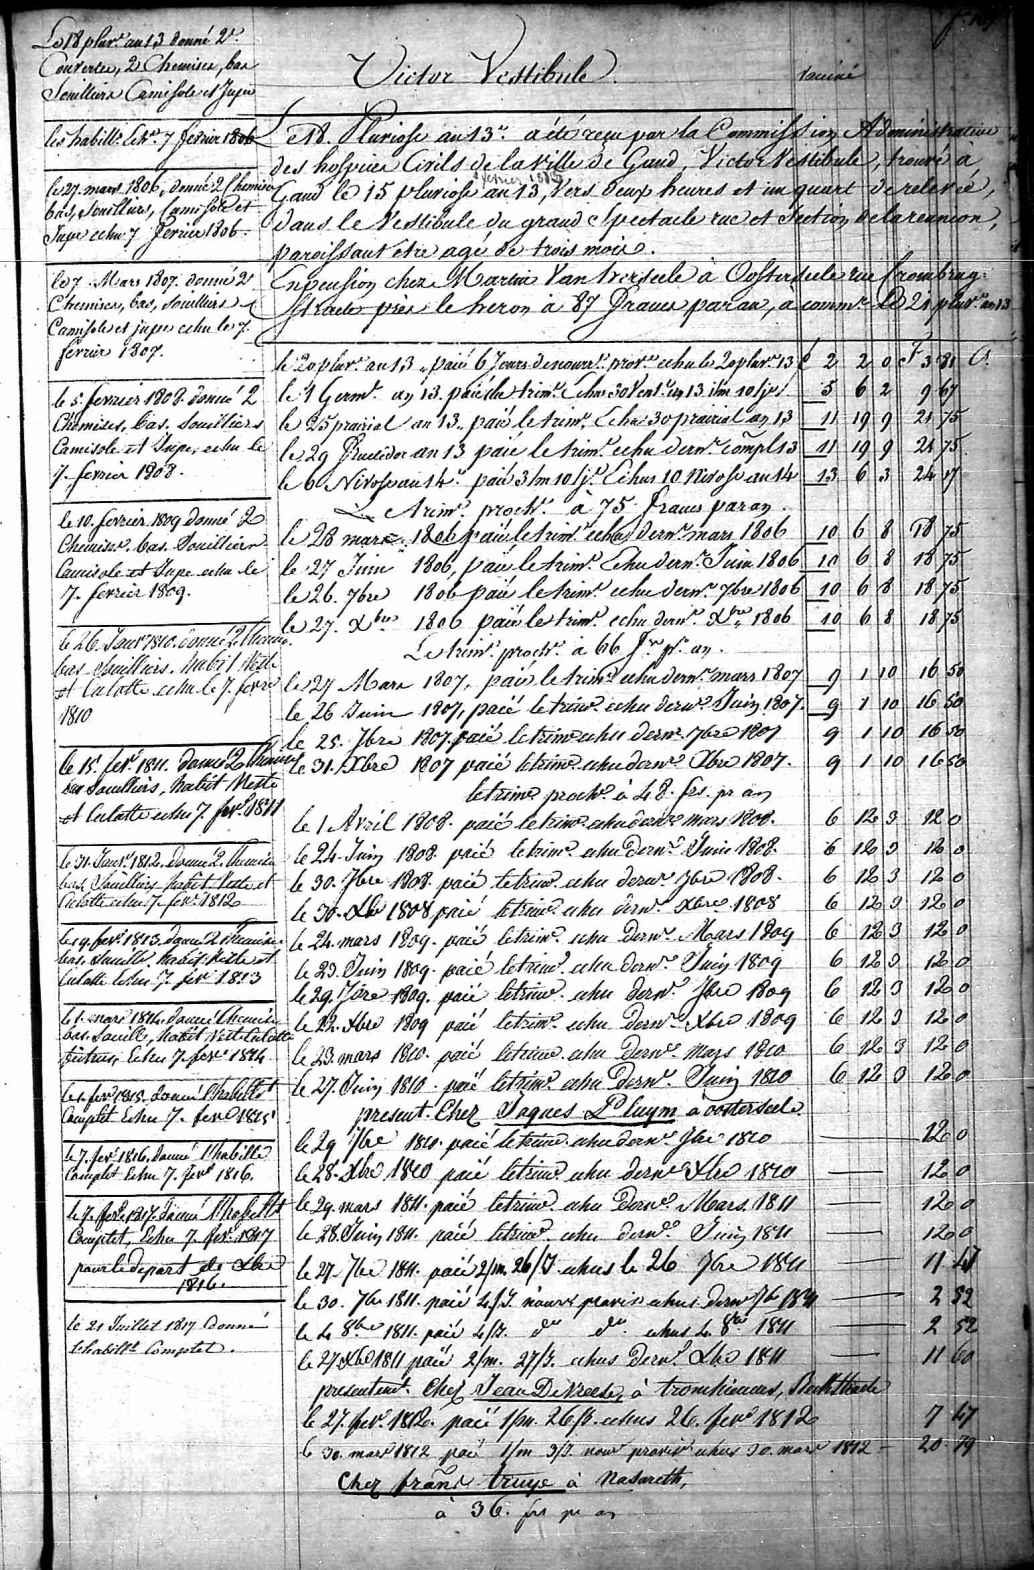 Le 18 pluv.e an 13 donné 2
Couvertes, 2 Chemises, bas
Souilliers Camisole et Jupe
les habill.ts 7 fevrier 1806
le 27. mars 1806, donné 2 Chemises
bas, Souilliers, Camisole et
Jupe echu 7 fevrier 1806.
le 7 Mars 1807. donné 2
Chemises, bas, Souilliers
Camisole et jupe echu le 7.
fevrier 1807.
le 5. fevrier 1808. donné 2
Chemises, bas, Souilliers
Camisole et Jupe, echu le
7. fevrier 1808.
le 10. fevrier 1809 donné 2
Chemises. bas. Souilliers
Camisole et Jupe echu le
7. fevrier 1809.
le 26. Janv. 1810. donné 2 Chemises
bas, Souilliers, habit Veste
et Culotte, echu le 7. fevr
1810
le 15. fev. 1811. donné 2 Chemises
bas Souilliers, habit Veste
et Culotte echu 7. fev. 1811
le 31. Janv. 1812. donné 2. Chemises
bas Souilliers, habit Veste et
Culotte echu 7. fev. 1812
le 19. fev. 1813. donné 2 Chemises
bas, Souill. habit Veste et
Culotte echu 7. fev. 1813
le 1. mars 1814. donné Chemises
bas, Souill., habit Vest Culotte
echu 7. fev. 1814
fev 1815. donné l'habill.t
Complet echu 7. fev. 1815
le 7. fev. 1816. donné l'habill.
Complet echu 7. fev. 1816.
le 7. 1817. donné l'habill.t
Complet, echu 7. fev. 1817
pour le depart de Xbre
1816.
le 21 Juillet 1817 donné
l'habill.t Complet.
Victor Vestibule.
vacciné
Le 18. Pluviose an 13.e a été reçu par la Commission Administrative
des hospices Civils de la Ville de Gand, Victor Vestibule, trouvé à
fevrier
Gand le 15 pluviose an 13, vers deux heures et un quart de relevée,
dans le Vestibule du grand Spectacle rue et Section de la reunion,
paroissant être agé de trois mois.
En pension chez Martin Van Iverseele à Oosterzeele rue
Straete près le heron à 87 francs par an, a comm.é le 21 pluv.e an 13
le 20 pluv.e an 13, paié 6 Jours de nourr. prov. echu le 20 pluv.e 13 £ 2 2 0 F 3 81
le 1 Germ.l an 13. paié le trim. Echu 30 Vent. an 13 5 6 2 9 67
le 25 prairial an 13. paié le trim. Echu 30 prairial an 13 11 19 9 21 75
le 29 Fructidor an 13 paié le trim. echu dern. compl. 13 11 19 9 21 75
le 6 Nivose an 14.e paié 3/m 10/j. Echus 10 Nivose an 14 13 6 3 24 17
Le trim. proch. à 75 francs par an.
le 28 mars 1806 paié le trim. echu dern. mars 1806 10 6 8 18 75
le 27 Juin 1806, paié le trim. Echu dern. Juin 1806 10 6 8 18 75
le 26. 7bre 1806 paié le trim. echu dern. 7bre 1806 10 6 8 18 75
le 27. Xbre 1806 paié le trim. echu dern. Xbre 1806 10 6 8 18 75
Le trim. proch. à 66 fr. p. an.
le 27 Mars 1807, paié le trim. echu dern. mars 1807 9 1 10 16 50
le 26 Juin 1807, paié le trim. echu dern. Juin 1807. 9 1 10 16 50
le 25. 7bre 1807. paié le trim. echu dern. 7bre 1807 9 1 10 16 50
le 31. Xbre 1807 paié le trim. echu dern. Xbre 1807. 9 1 10 16 50
le trim. proch. à 48. frs. pr an
le 1 Avril 1808. paié le trim. echu dern. mars 1808. 6 12 3 12 0
le 24. Juin 1808. paié le trim. echu dern. Juin 1808. 6 12 3 12 0
le 30. 7bre 1808. paié le trim. echu dern. 7bre 1808. 6 12 3 12 0
le 30. Xbre 1808 paié le trim. echu dern. Xbre 1808 6 12 3 12 0
le 24. mars 1809. paié le trim. echu dern. Mars 1809 6 12 3 12 0
le 23. Juin 1809. paié le trim. echu dern. Juin 1809 6 12 3 12 0
le 29. 7bre 1809. paié le trim. echu dern. 7bre 1809 6 12 3 12 0
le 22. Xbre 1809 paié le trim. echu dern. Xbre 1809 6 12 3 12 0
le 23. mars 1810. paié le trim. echu dern. mars 1810 6 12 3 12 0
le 27. Juin 1810. paié le trim. echu dern. Juin 1810 6 12 3 12 0
present. Chez Jaques D'luym à oosterseele
le 29 7bre 1810. paié le trim. echu dern. 7bre 1810 12 0
le 28. Xbre 1810 paié le trim. echu dern. Xbre 1810 12 0
le 29. mars 1811. paié le trim. echu dern. Mars. 1811 12 0
le 28. Juin 1811. paié le trim. echu dern. Juin 1811 12 0
le 27. 7bre 1811. paié 2/m. 26/J. echus le 26 7bre 1811 11 47
le 30. 7bre 1811. paié 4/J. nourr. provis. echus dern. 7br 1811 2 52
le 4 8bre 1811. paié 4/J. d.o d.o echus 4. 8bre 1811 2 52
le 27 Xbre 1811 paié 2/m. 27/J. echus dern. Xbre 1811 11 60
presentem.t Chez Jean De Vreese, à tronchiennes,
le 27. fev. 1812. paié 1/m. 26/J. echus 26. fev. 1812 7 47
le 30. mars 1812 paié 1/m 3/J. nour provis. echus 30. mars 1812 20 79
Chez franc. truye à Nasareth,
à 36. frs pr an